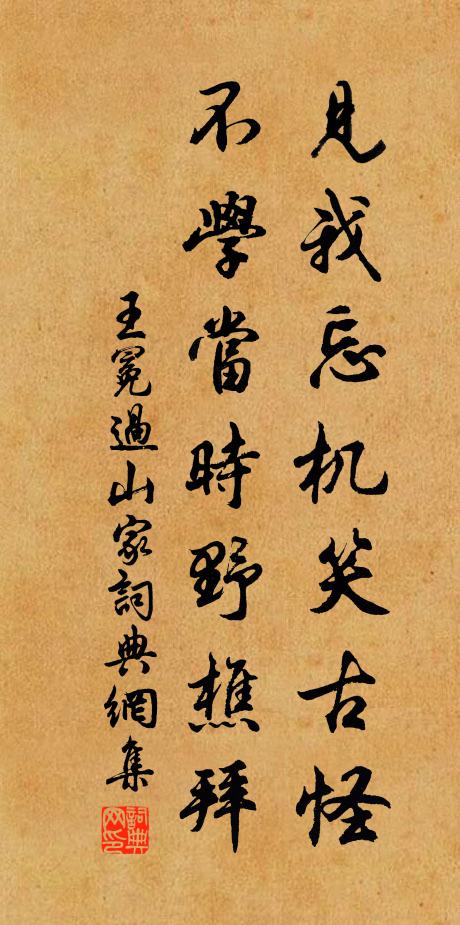 見我忘机笑古怪
不學當時野樵拜
王冕過山家詞典網集
詞典网印